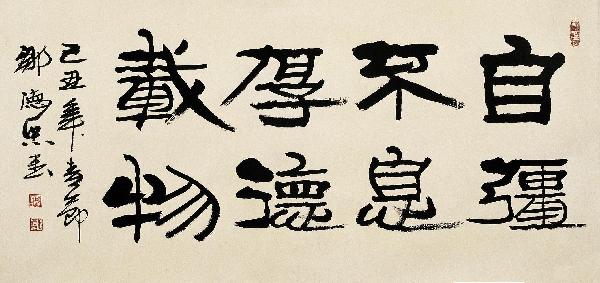 自彊
不息
厚德
載物
己丑年春節
鄒德忠書